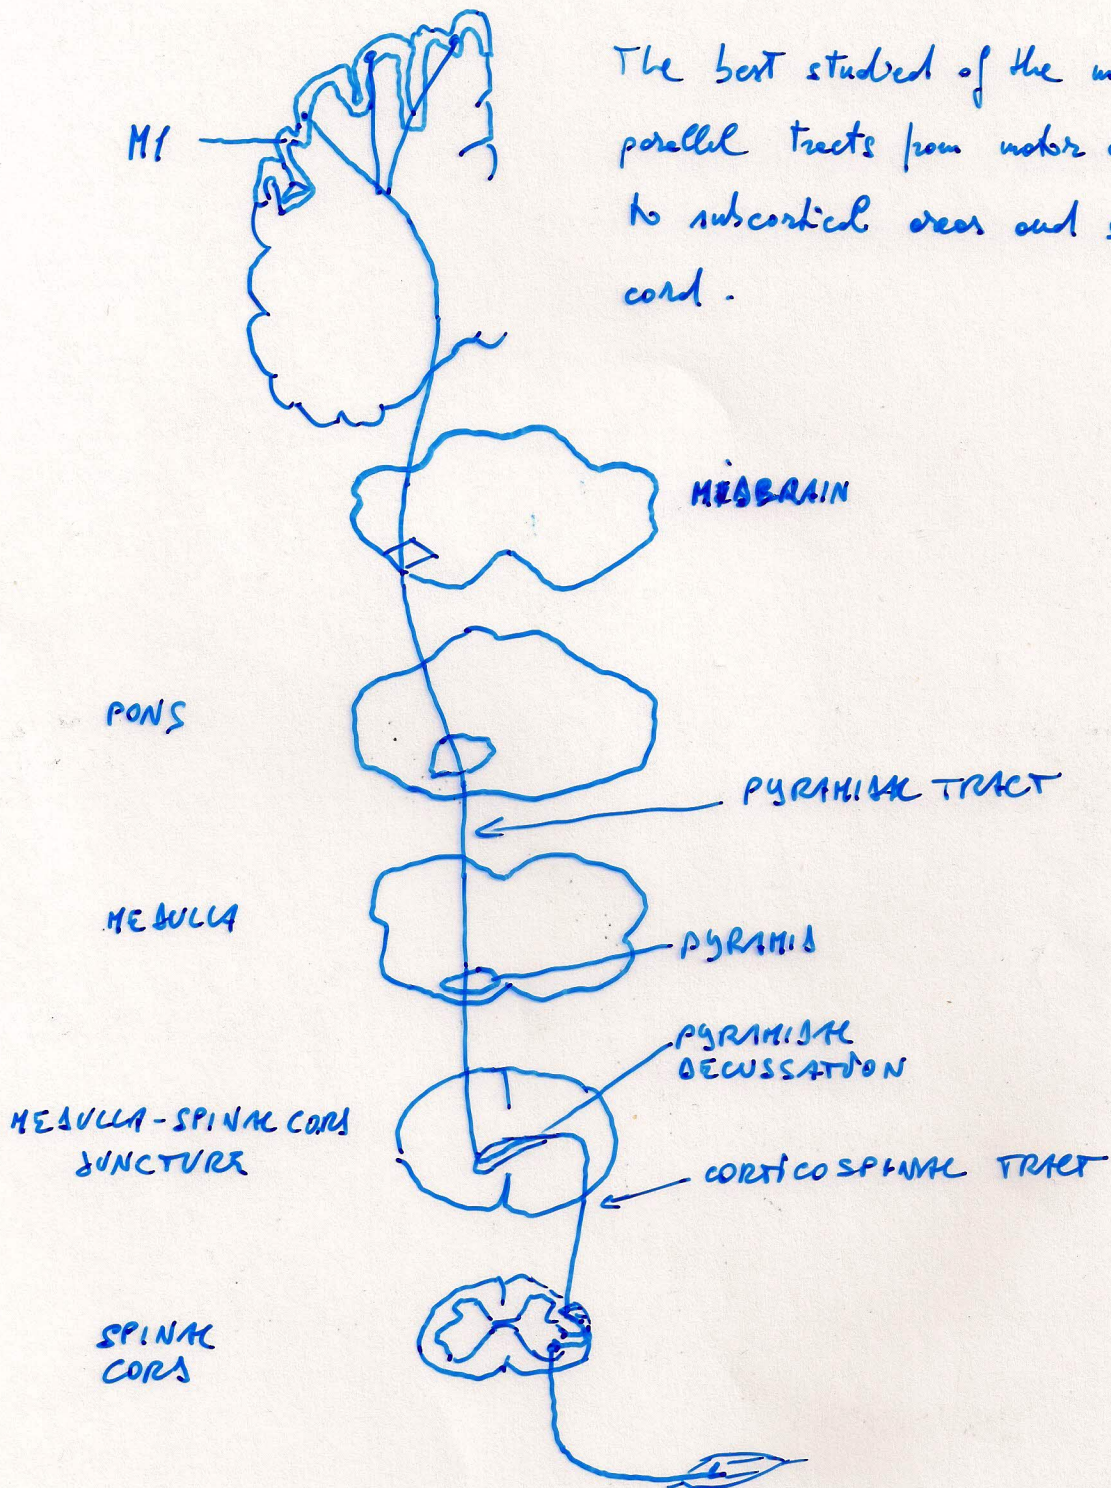 The best studied of the
parallel tracts from motor
to subcortical areas and
cord.
M1
MIDBRAIN
PONS
PYRAMIDAL TRACT
MEDULLA
PYRAMID
PYRAMIDAL
DECUSSATION
MEDULLA-SPINAL CORD
JUNCTURE
CORTICOSPINAL TRACT
SPINAL
CORD